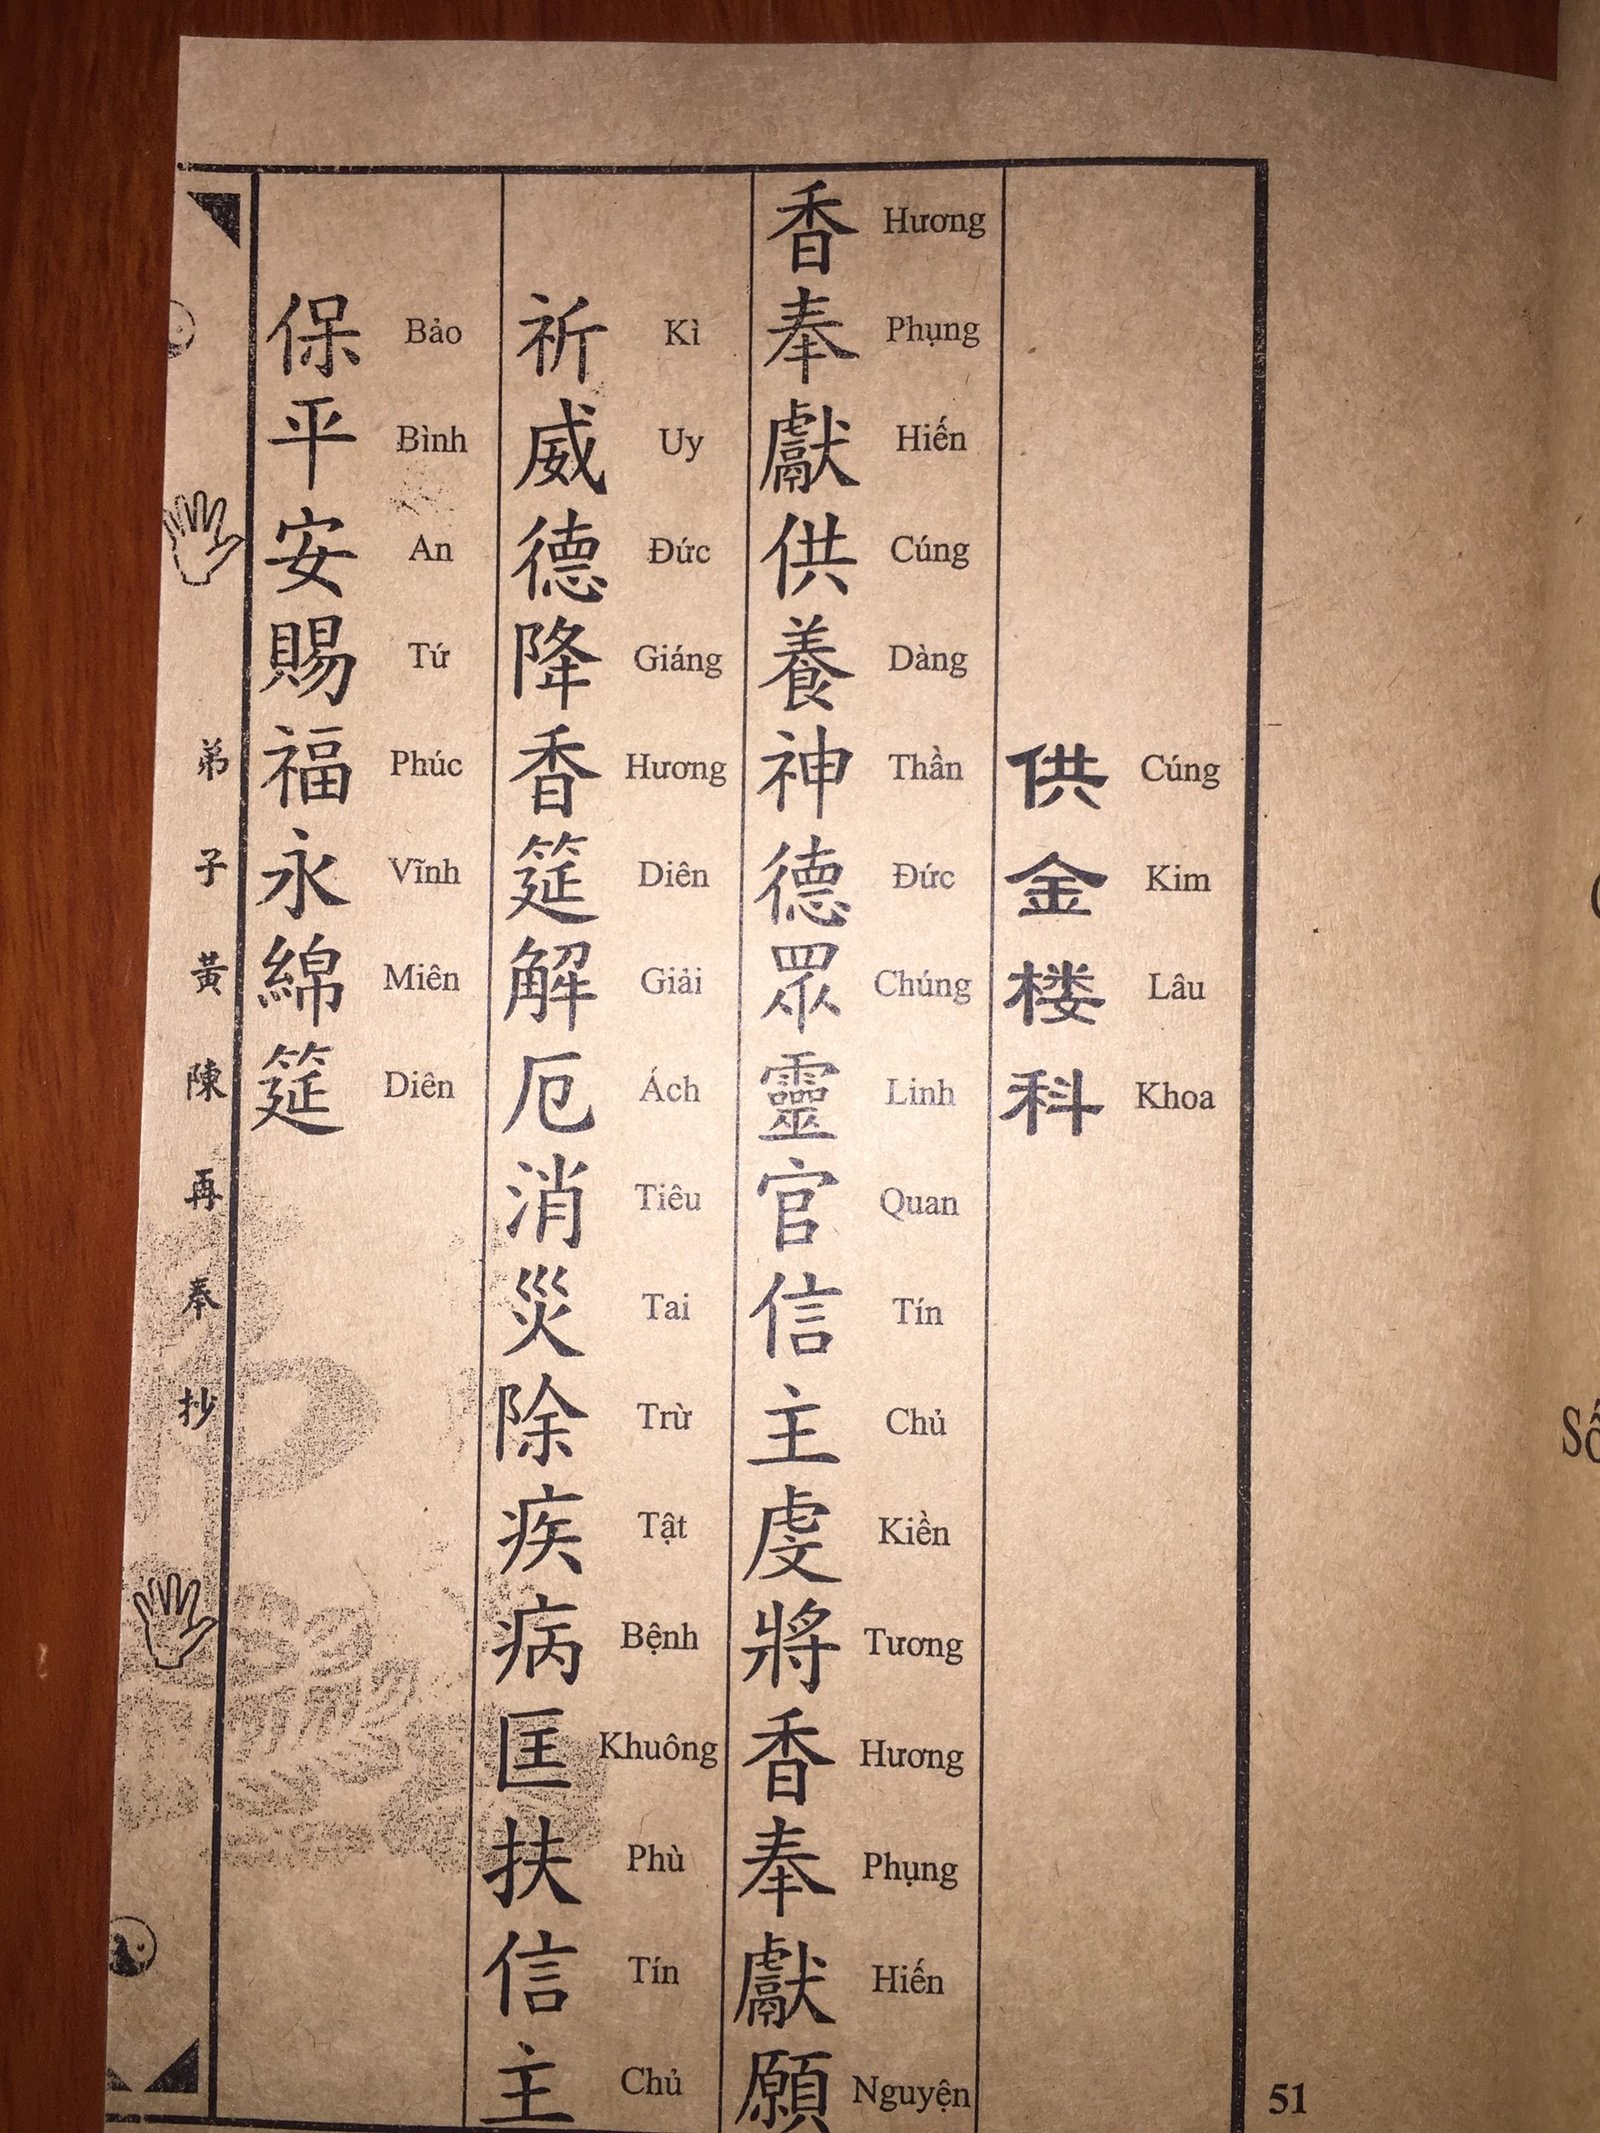 供 Cúng
金 Kim
楼 Lâu
科 Khoa
香 Hương
奉 Phụng
獻 Hiến
供 Cúng
養 Dàng
神 Thần
德 Đức
眾 Chúng
靈 Linh
官 Quan
信 Tín
主 Chủ
虔 Kiền
將 Tương
香 Hương
奉 Phụng
獻 Hiến
願 Nguyện
祈 Kì
威 Uy
德 Đức
降 Giáng
香 Hương
筵 Diên
解 Giải
厄 Ách
消 Tiêu
災 Tai
除 Trừ
疾 Tật
病 Bệnh
匡 Khuông
扶 Phù
信 Tín
主 Chủ
保 Bảo
平 Bình
安 An
賜 Tứ
福 Phúc
永 Vĩnh
綿 Miên
筵 Diên
弟子黃陳再奉抄
51